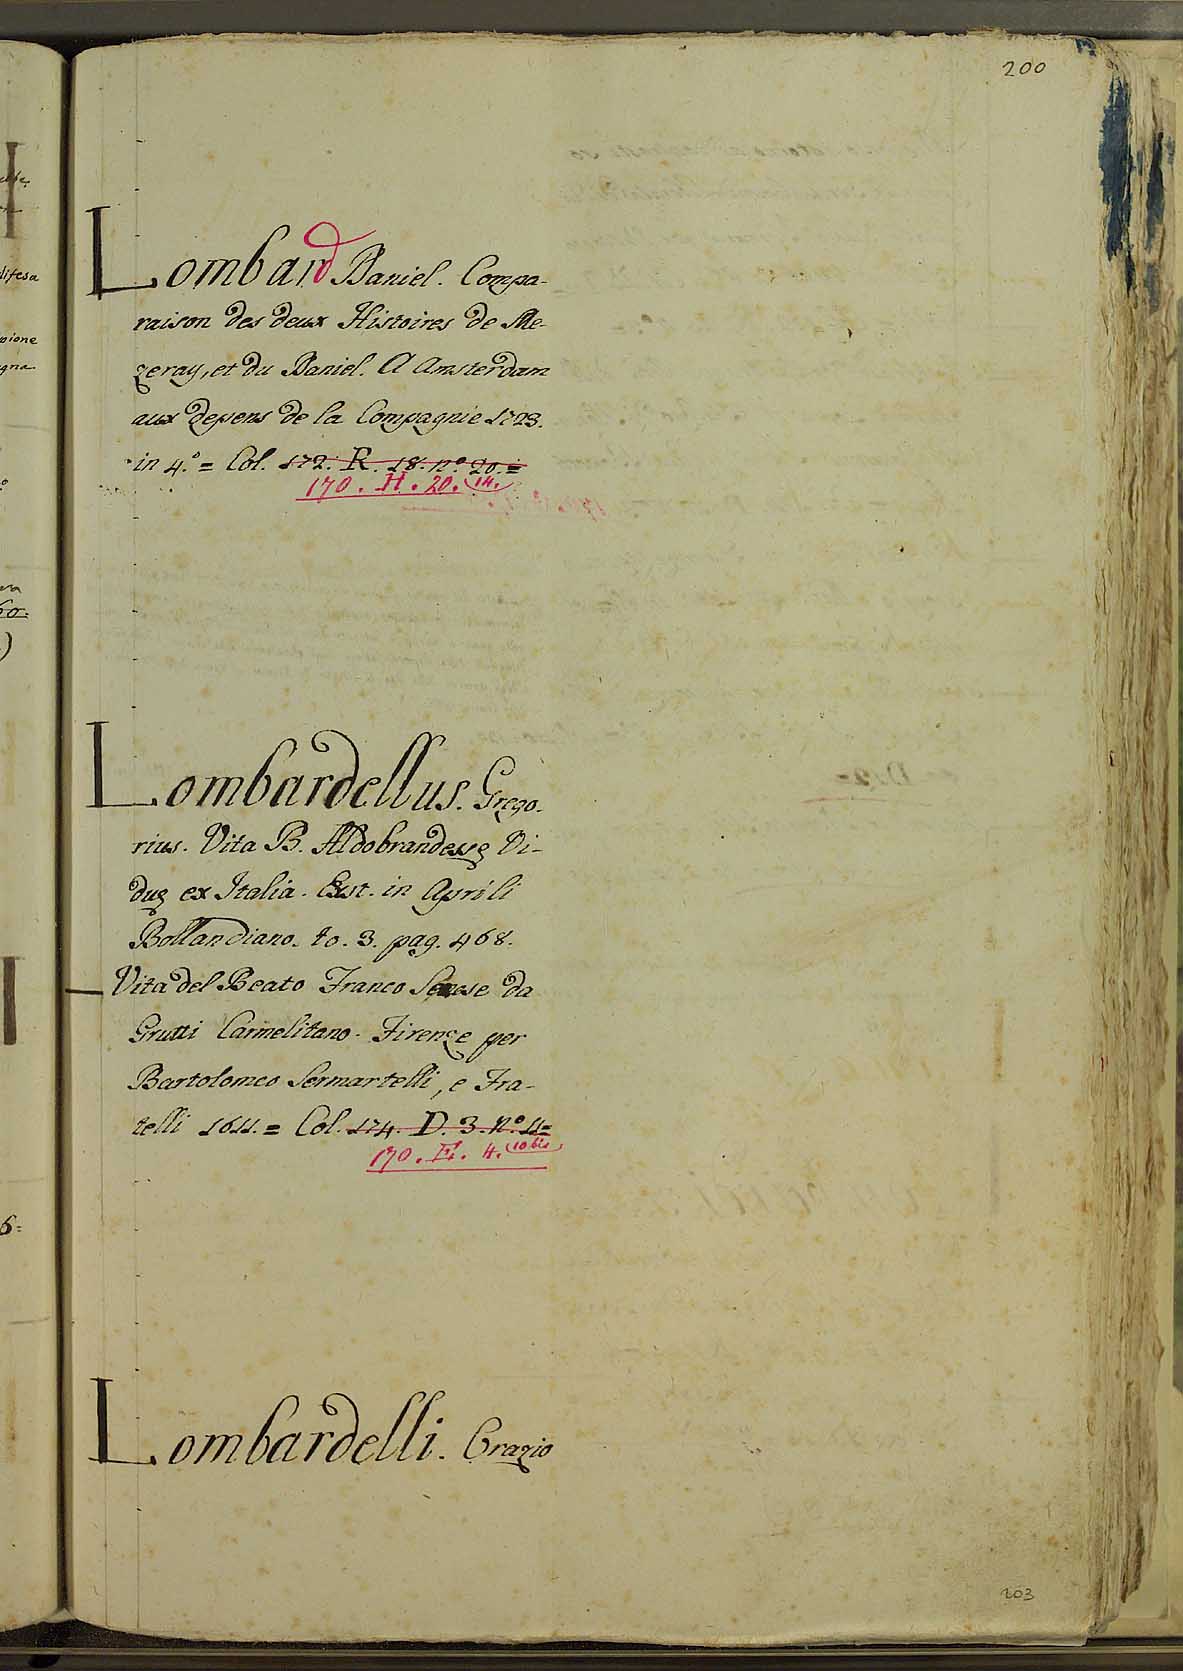 200
Lombard Daniel. Compa-
raison des deux Histoires de Me-
zeray, et du Daniel. A Amsterdam
aux depens de la Compagnie 1723.
in 4.º = Col. 172. R. 18. nº 20. =
170. H. 20. (14.)
Lombardellus. Grego-
rius. Vita B. Aldobrandescę Vi-
duę ex Italia. Exst. in Aprili
Bollandiano. to. 3. pag. 468.
— Vita del Beato Franco Senese da
Grutti Carmelitano. Firenze per
Bartolomeo Sermartelli, e Fra-
telli 1611. = Col. 174. D. 3. nº 11=
170. E. 4. (10 bis)
Lombardelli. Orazio
203